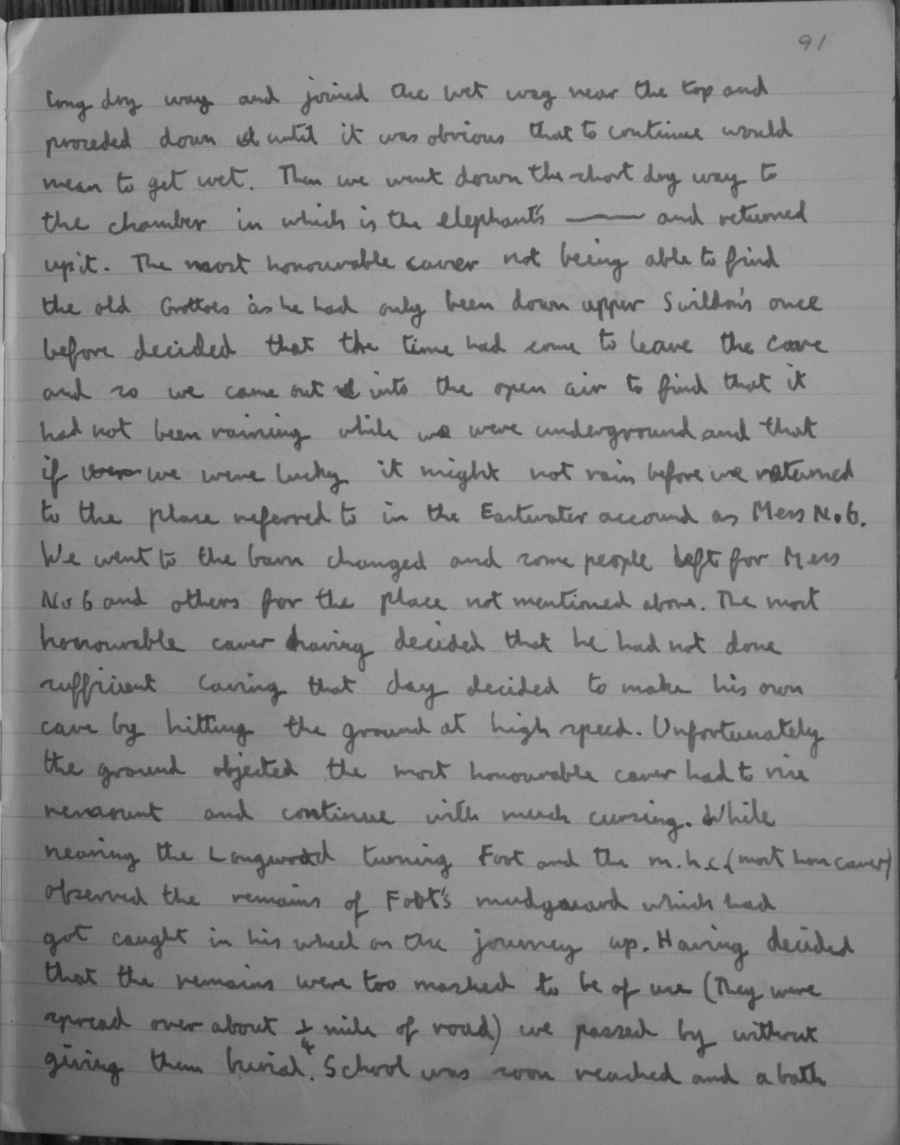 91
long dry way and joined the wet way near the top and
proceded down until it was obvious that to continue would
mean to get wet. Then we went down the short dry way to
the chamber in which is the elephant's —— and returned
up it. The most honourable caver not being able to find
the old Grottoes as he had only been down upper Swildon's once
before decided that the time had come to leave the cave
and so we came out into the open air to find that it
had not been raining while we were underground and that
if we were lucky it might not rain before we returned
to the place referred to in the Eastwater accound as Mess No 6.
We went to the barn changed and some people left for Mess
No 6 and others for the place not mentioned above. The most
honourable caver having decided that he had not done
sufficient caving that day decided to make his own
cave by hitting the ground at high speed. Unfortunately
the ground objected the most honourable caver had to rise
remount and continue with much cursing. While
nearing the Longwood turning Foot and the m.h.c. (most hon caver)
observed the remains of Foot's mudguard which had
got caught in his wheel on the journey up. Having decided
that the remains were too mashed to be of use (They were
spread over about 1/4 mile of road) we passed by without
giving them burial. School was soon reached and a bath